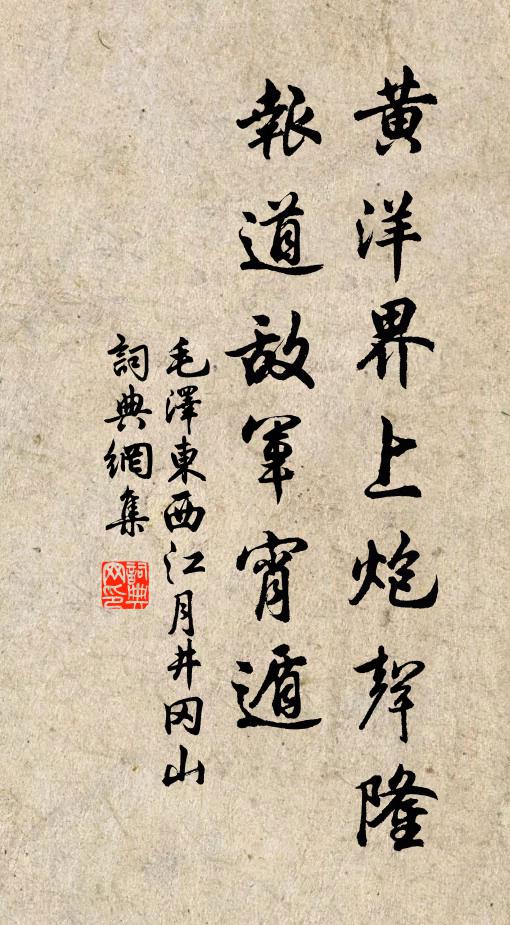 黄洋界上炮聲隆
報道敌軍宵遁
毛澤東西江月井冈山
詞典網集
詞典网印